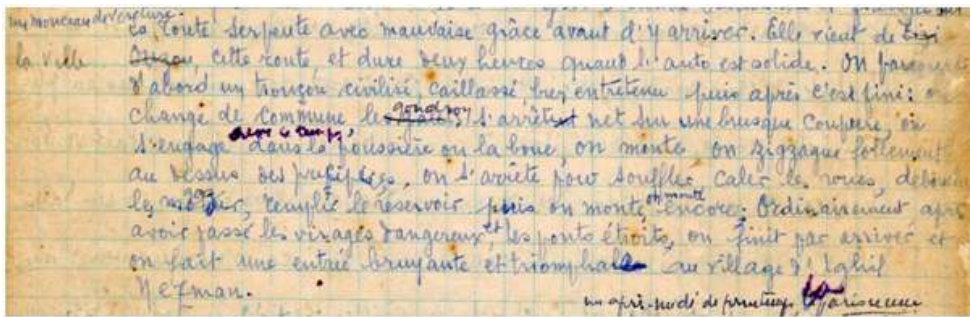 un monceau de verdure.
la route serpente avec mauvaise grâce avant d'y arriver. Elle vient de Tizi
la ville
Ouzou, cette route, et dure deux heures quand l'auto est solide. On parcourt
d'abord un tronçon civilisé, caillassé, bien entretenu puis après c'est fini: on
change de commune le goudron s'arrête net sur une brusque coupure, on
s'engage selon le temps, dans la poussière ou la boue, on monte, on zigzague follement
au dessus des précipices, on s'arrête pour souffler, caler les roues,
remplir le réservoir puis on monte, on monte encore. Ordinairement après
avoir passé les virages dangereux et les ponts étroits, on finit par arriver et
on fait une entrée bruyante et triomphale au village d'Ighil
Nezman.
un après-midi de printemps